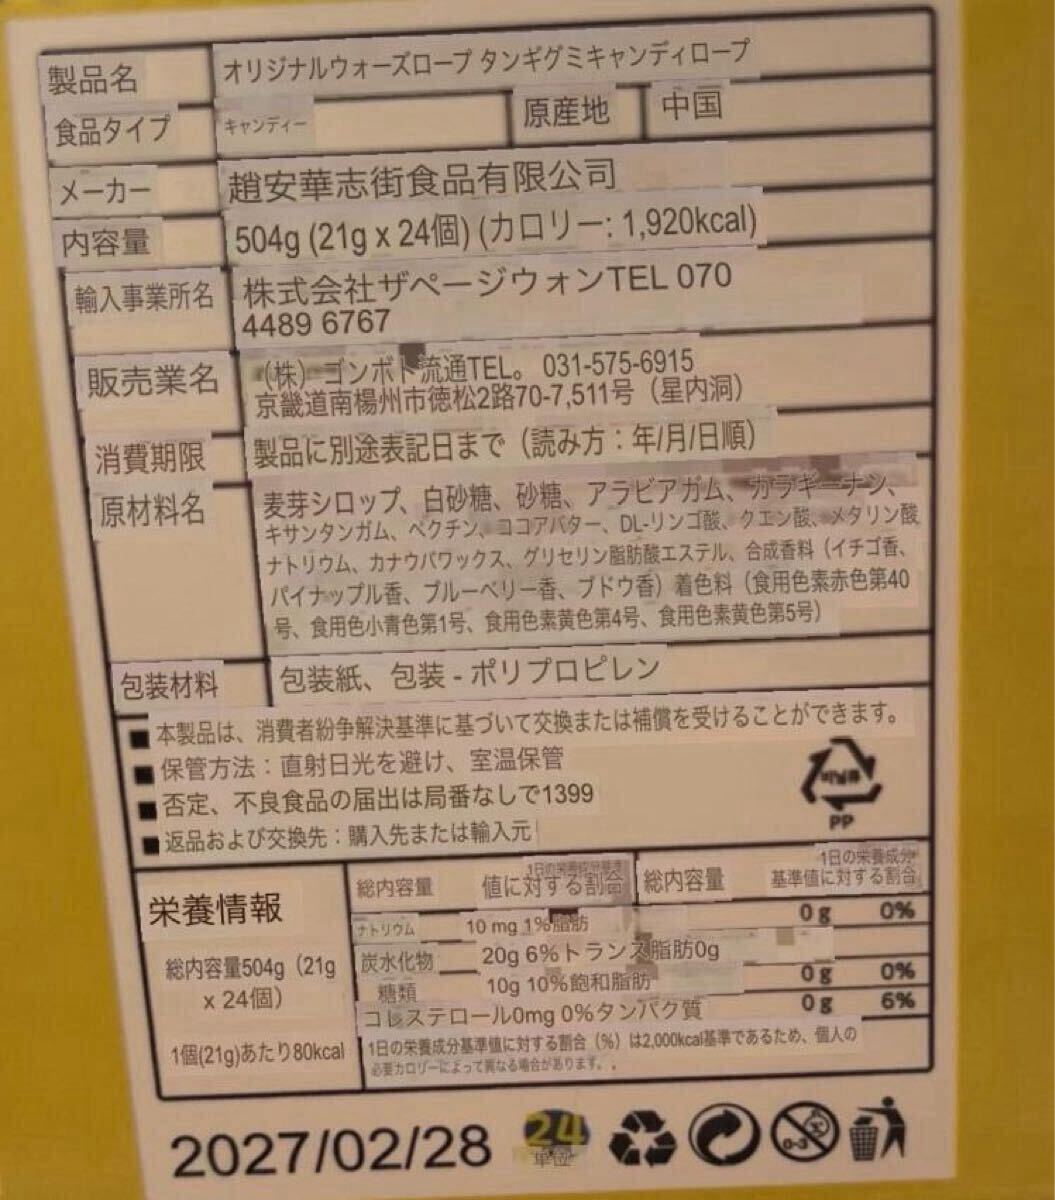 製品名 オリジナルウォーズロープ タンギグミキャンディロープ
食品タイプ キャンディー 原産地 中国
メーカー 趙安華志街食品有限公司
内容量 504g (21g x 24個) (カロリー: 1,920kcal)
輸入事業所名 株式会社ザページウォンTEL 070
4489 6767
販売業名 (株) ゴンボト流通TEL。 031-575-6915
京畿道南楊州市徳松2路70-7,511号（星内洞）
消費期限 製品に別途表記日まで（読み方：年/月/日順）
原材料名 麦芽シロップ、白砂糖、砂糖、アラビアガム、カラギーナン、
キサンタンガム、ペクチン、ココアバター、DL-リンゴ酸、クエン酸、メタリン酸
ナトリウム、カナウバワックス、グリセリン脂肪酸エステル、合成香料（イチゴ香、
パイナップル香、ブルーベリー香、ブドウ香）着色料（食用色素赤色第40
号、食用色小青色第1号、食用色素黄色第4号、食用色素黄色第5号）
包装材料 包装紙、包装 - ポリプロピレン
■ 本製品は、消費者紛争解決基準に基づいて交換または補償を受けることができます。
■ 保管方法：直射日光を避け、室温保管
■ 否定、不良食品の届出は局番なしで1399
■ 返品および交換先：購入先または輸入元
PP
栄養情報
総内容量504g（21g
x 24個）
1個(21g)あたり80kcal
総内容量 1日の栄養成分基準
値に対する割合 総内容量 1日の栄養成分
基準値に対する割合
ナトリウム 10 mg 1%脂肪 0 g 0%
炭水化物 20g 6%トランス脂肪0g
糖類 10g 10%飽和脂肪 0 g 0%
コレステロール0mg 0%タンパク質 0 g 6%
1日の栄養成分基準値に対する割合（%）は2,000kcal基準であるため、個人の
必要カロリーによって異なる場合があります。.
2027/02/28
24
0-3